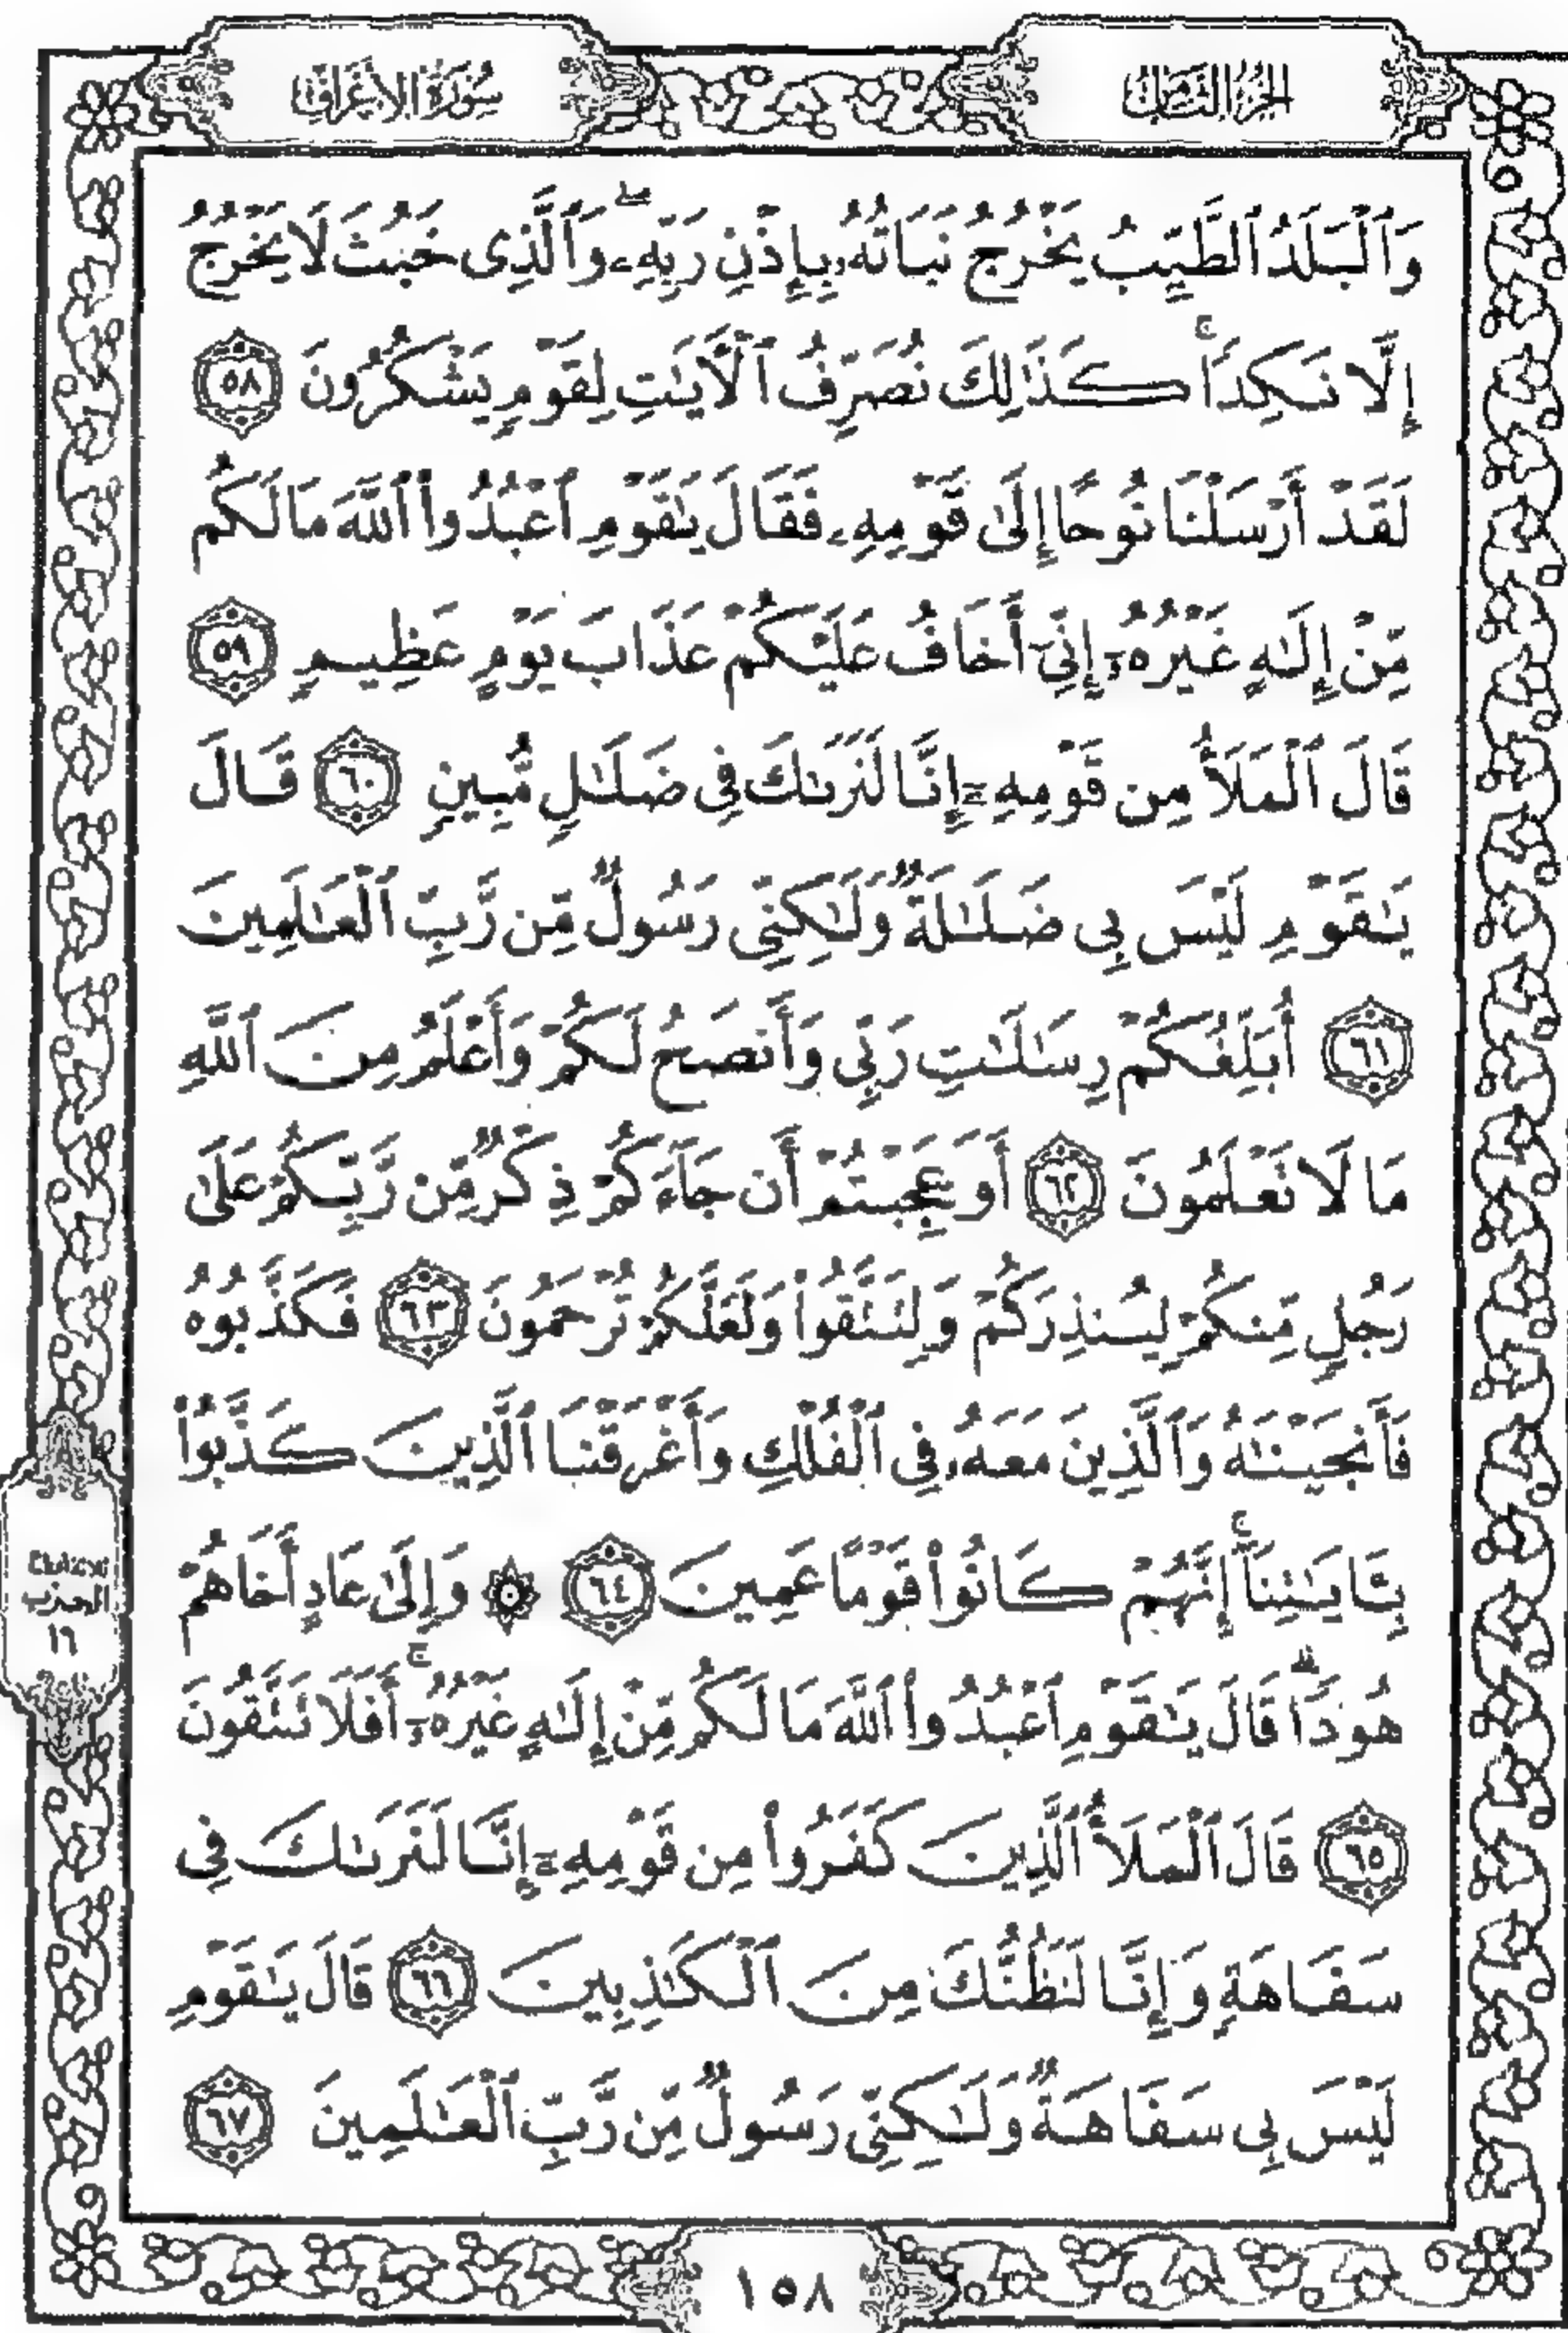 الجزء الثامن
سورة الأعراف
وَٱلْبَلَدُ ٱلطَّيِّبُ يَخْرُجُ نَبَاتُهُۥ بِإِذْنِ رَبِّهِۦۖ وَٱلَّذِى خَبُثَ لَا يَخْرُجُ
إِلَّا نَكِدًاۚ كَذَٰلِكَ نُصَرِّفُ ٱلْأَيَٰتِ لِقَوْمٍ يَشْكُرُونَ ٥٨
لَقَدْ أَرْسَلْنَا نُوحًا إِلَىٰ قَوْمِهِۦ فَقَالَ يَٰقَوْمِ ٱعْبُدُوا۟ ٱللَّهَ مَا لَكُم
مِّنْ إِلَٰهٍ غَيْرُهُۥٓ إِنِّىٓ أَخَافُ عَلَيْكُمْ عَذَابَ يَوْمٍ عَظِيمٍ ٥٩
قَالَ ٱلْمَلَأُ مِن قَوْمِهِۦٓ إِنَّا لَنَرَىٰكَ فِى ضَلَٰلٍ مُّبِينٍ ٦٠ قَالَ
يَٰقَوْمِ لَيْسَ بِى ضَلَٰلَةٌ وَلَٰكِنِّى رَسُولٌ مِّن رَّبِّ ٱلْعَٰلَمِينَ
٦١ أُبَلِّغُكُمْ رِسَٰلَٰتِ رَبِّى وَأَنصَحُ لَكُمْ وَأَعْلَمُ مِنَ ٱللَّهِ
مَا لَا تَعْلَمُونَ ٦٢ أَوَعَجِبْتُمْ أَن جَآءَكُمْ ذِكْرٌ مِّن رَّبِّكُمْ عَلَىٰ
رَجُلٍ مِّنكُمْ لِيُنذِرَكُمْ وَلِتَتَّقُوا۟ وَلَعَلَّكُمْ تُرْحَمُونَ ٦٣ فَكَذَّبُوهُ
فَأَنجَيْنَٰهُ وَٱلَّذِينَ مَعَهُۥ فِى ٱلْفُلْكِ وَأَغْرَقْنَا ٱلَّذِينَ كَذَّبُوا۟
بِـَٔايَٰتِنَآۚ إِنَّهُمْ كَانُوا۟ قَوْمًا عَمِينَ ٦٤ ۞ وَإِلَىٰ عَادٍ أَخَاهُمْ
هُودًاۗ قَالَ يَٰقَوْمِ ٱعْبُدُوا۟ ٱللَّهَ مَا لَكُم مِّنْ إِلَٰهٍ غَيْرُهُۥٓۚ أَفَلَا تَتَّقُونَ
٦٥ قَالَ ٱلْمَلَأُ ٱلَّذِينَ كَفَرُوا۟ مِن قَوْمِهِۦٓ إِنَّا لَنَرَىٰكَ فِى
سَفَاهَةٍ وَإِنَّا لَنَظُنُّكَ مِنَ ٱلْكَٰذِبِينَ ٦٦ قَالَ يَٰقَوْمِ
لَيْسَ بِى سَفَاهَةٌ وَلَٰكِنِّى رَسُولٌ مِّن رَّبِّ ٱلْعَٰلَمِينَ ٦٧
الحزب
١٦
١٥٨